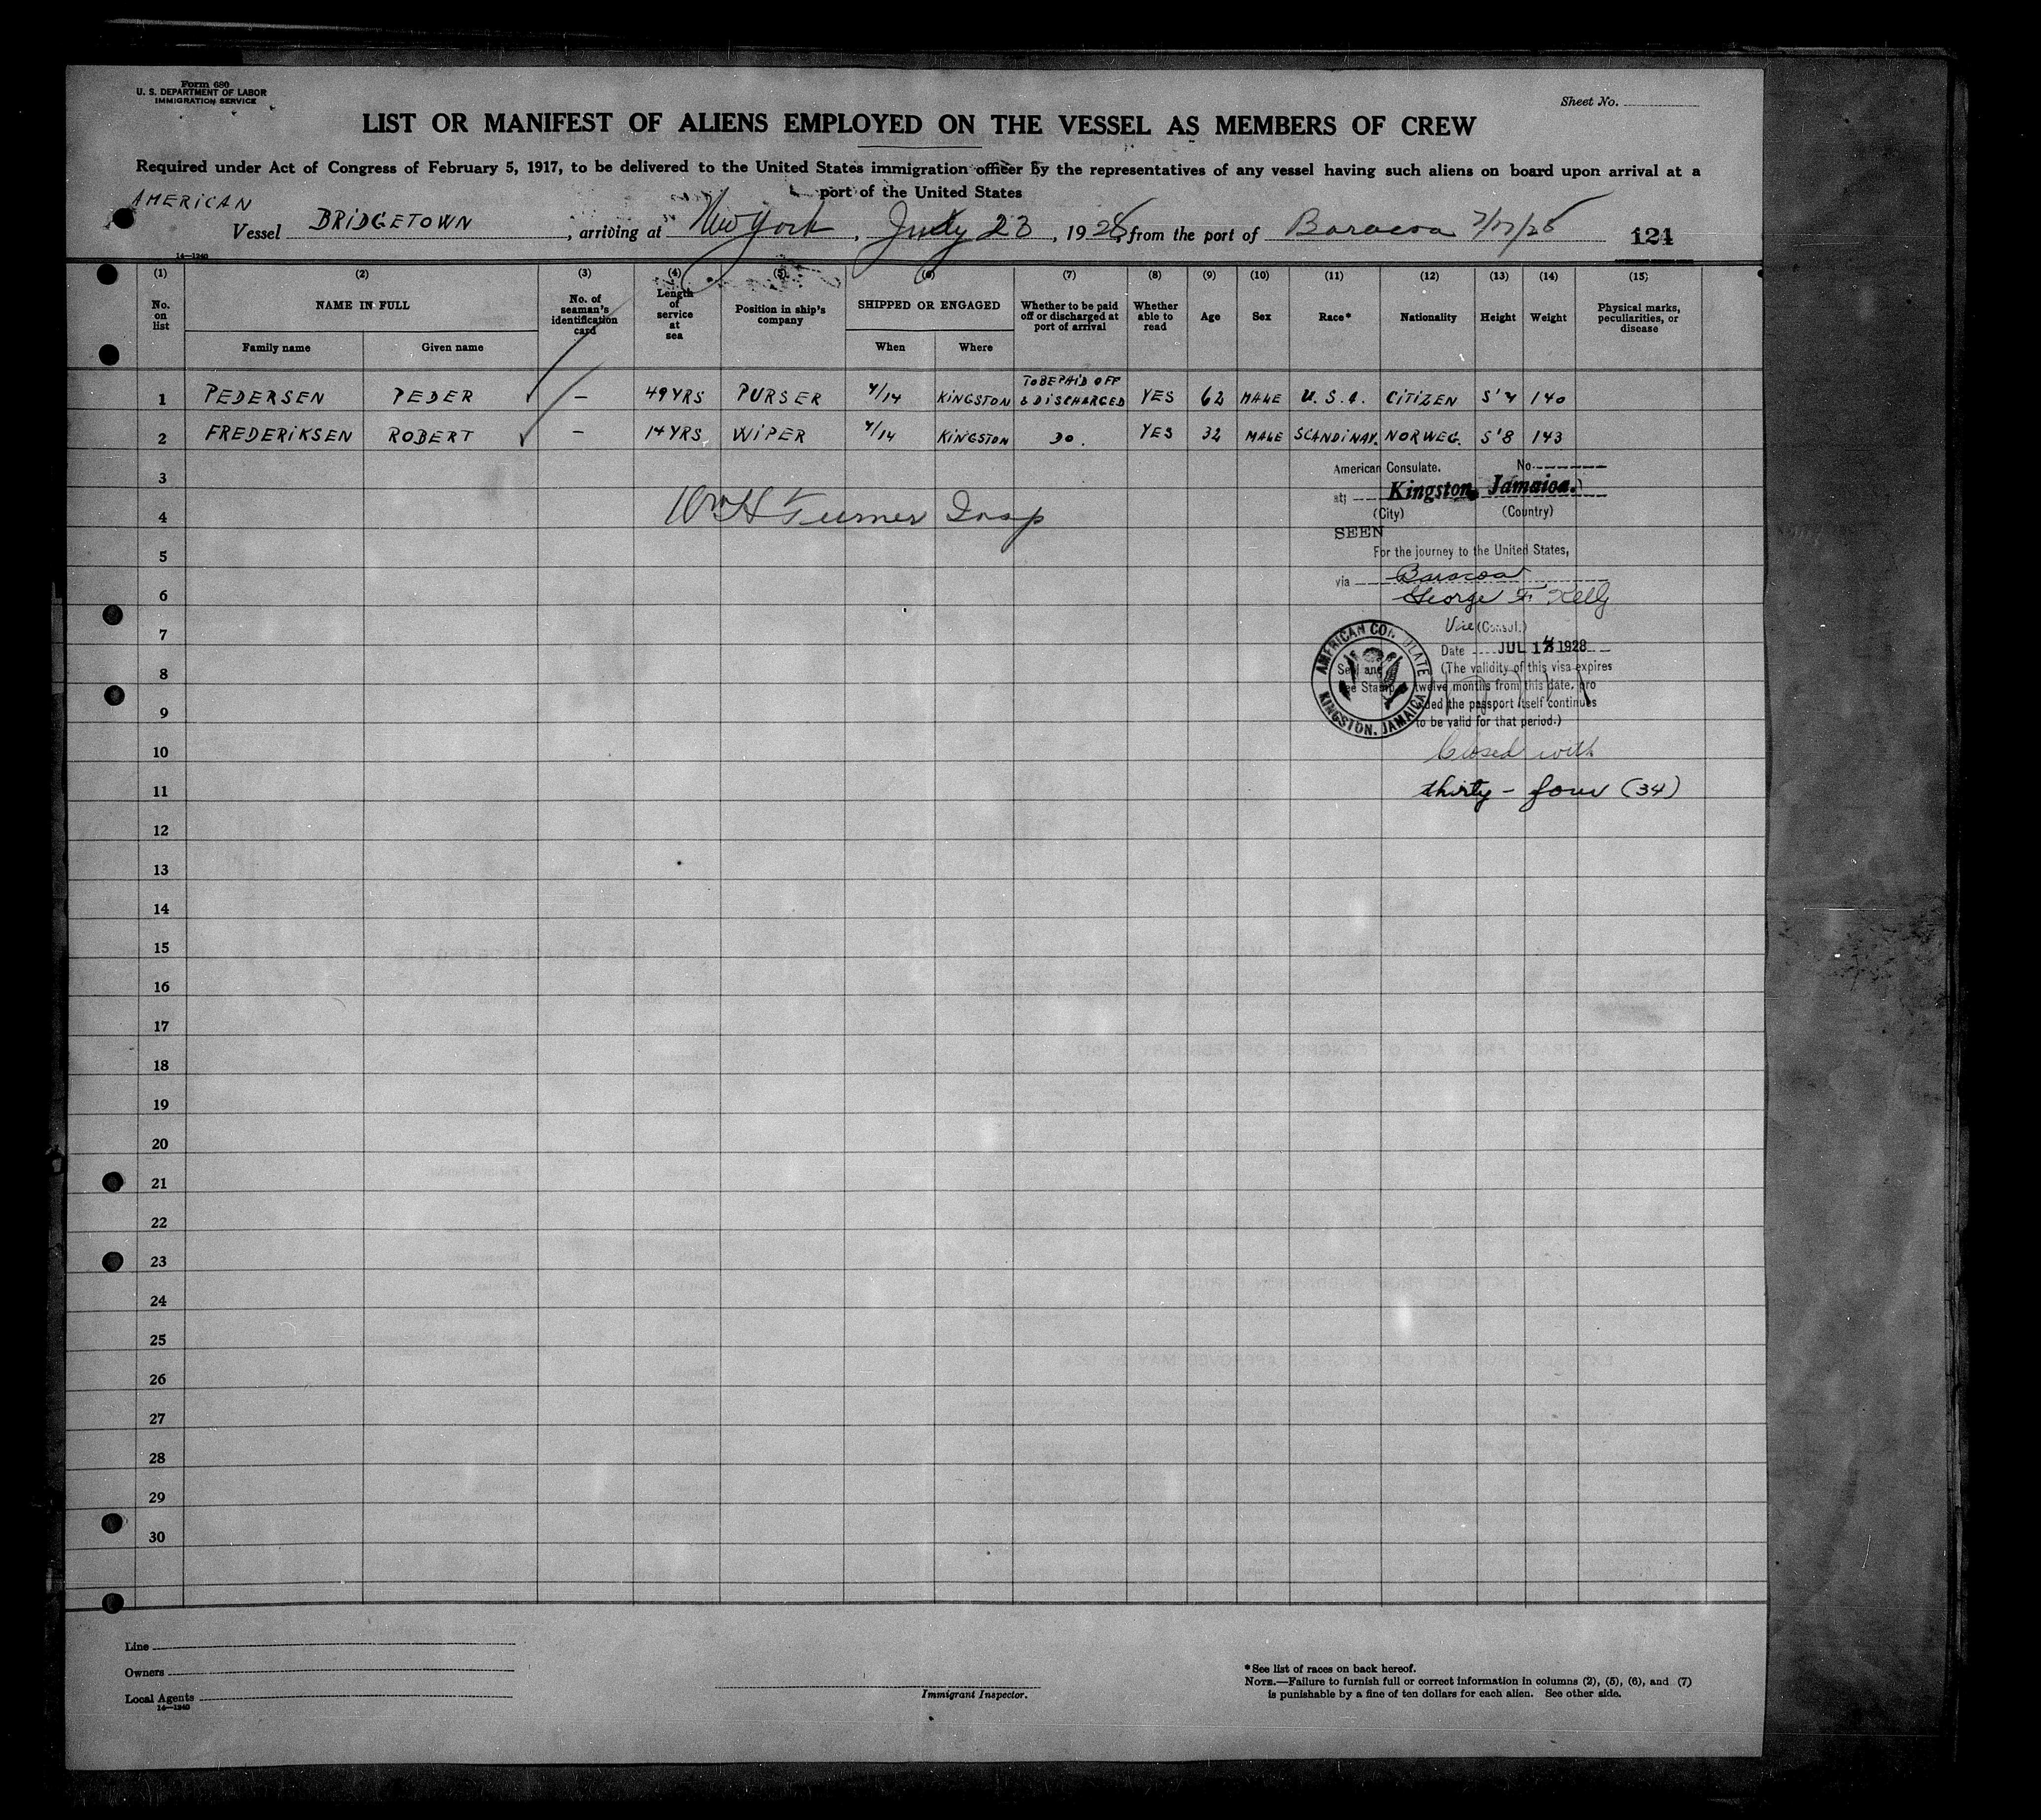 Form 680
U. S. DEPARTMENT OF LABOR
IMMIGRATION SERVICE
Sheet No.
LIST OR MANIFEST OF ALIENS EMPLOYED ON THE VESSEL AS MEMBERS OF CREW
Required under Act of Congress of February 5, 1917, to be delivered to the United States immigration officer by the representatives of any vessel having such aliens on board upon arrival at a
port of the United States
AMERICAN
Vessel BRIDGETOWN, arriving at New York, July 23, 1928, from the port of Baracoa 7/17/28 124
14—1240
(1) (2) (3) (4) (5) (6) (7) (8) (9) (10) (11) (12) (13) (14) (15)
No. on list NAME IN FULL No. of seaman's identification card Length of service at sea Position in ship's company SHIPPED OR ENGAGED Whether to be paid off or discharged at port of arrival Whether able to read Age Sex Race* Nationality Height Weight Physical marks, peculiarities, or disease
Family name Given name When Where
1 PEDERSEN PEDER — 49 YRS PURSER 7/14 KINGSTON TO BE PAID OFF & DISCHARGED YES 62 MALE U.S.A. CITIZEN 5'4 140
2 FREDERIKSEN ROBERT — 14 YRS WIPER 7/14 KINGSTON DO. YES 32 MALE SCANDINAV. NORWEG. 5'8 143
3
American Consulate. No.
at; Kingston, Jamaica.
4
Wm H Turner Insp
(City) (Country)
SEEN
5
For the journey to the United States,
via Baracoa
6
George F Kelly
7
Vice (Consul.)
Date JUL 14 1928
AMERICAN CONSULATE
KINGSTON, JAMAICA
Seal and
Fee Stamp
8
(The validity of this visa expires
twelve months from this date, pro
9
ded the passport itself continues
to be valid for that period.)
10
Closed with
11
thirty - four (34)
12
13
14
15
16
17
18
19
20
21
22
23
24
25
26
27
28
29
30
Line
Owners
Local Agents
14—1240
Immigrant Inspector.
*See list of races on back hereof.
NOTE.—Failure to furnish full or correct information in columns (2), (5), (6), and (7)
is punishable by a fine of ten dollars for each alien. See other side.